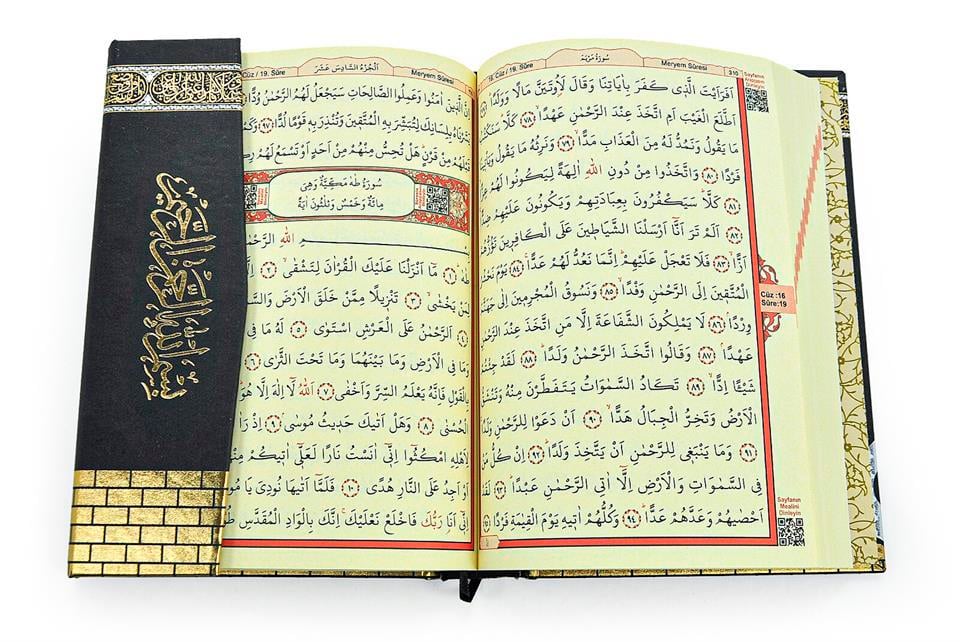 16. Cüz / 19. Sûre
سُورَةُ مَرْيَمَ
Meryem Sûresi
310
Sayfanın Arapçasını Dinleyin
اَفَرَاَيْتَ الَّذٖى كَفَرَ بِاٰيَاتِنَا وَقَالَ لَاُوتَيَنَّ مَالًا وَوَلَدًا
اَطَّلَعَ الْغَيْبَ اَمِ اتَّخَذَ عِنْدَ الرَّحْمٰنِ عَهْدًا ﴿٧٨﴾ كَلَّا
مَا يَقُولُ وَنَمُدُّ لَهُ مِنَ الْعَذَابِ مَدًّا ﴿٧٩﴾ وَنَرِثُهُ مَا يَقُولُ
فَرْدًا ﴿٨٠﴾ وَاتَّخَذُوا مِنْ دُونِ اللّٰهِ اٰلِهَةً لِيَكُونُوا لَهُمْ
﴿٨١﴾ كَلَّا سَيَكْفُرُونَ بِعِبَادَتِهِمْ وَيَكُونُونَ عَلَيْهِمْ
﴿٨٢﴾ اَلَمْ تَرَ اَنَّا اَرْسَلْنَا الشَّيَاطٖينَ عَلَى الْكَافِرٖينَ تَؤُزُّهُمْ
اَزًّا ﴿٨٣﴾ فَلَا تَعْجَلْ عَلَيْهِمْ اِنَّمَا نَعُدُّ لَهُمْ عَدًّا ﴿٨٤﴾ يَوْمَ
الْمُتَّقٖينَ اِلَى الرَّحْمٰنِ وَفْدًا ﴿٨٥﴾ وَنَسُوقُ الْمُجْرِمٖينَ اِلٰى
وِرْدًا ﴿٨٦﴾ لَا يَمْلِكُونَ الشَّفَاعَةَ اِلَّا مَنِ اتَّخَذَ عِنْدَ الرَّحْمٰنِ
عَهْدًا ﴿٨٧﴾ وَقَالُوا اتَّخَذَ الرَّحْمٰنُ وَلَدًا ﴿٨٨﴾ لَقَدْ جِئْتُمْ
شَيْـًٔا اِدًّا ﴿٨٩﴾ تَكَادُ السَّمٰوَاتُ يَتَفَطَّرْنَ مِنْهُ وَتَنْشَقُّ
الْاَرْضُ وَتَخِرُّ الْجِبَالُ هَدًّا ﴿٩٠﴾ اَنْ دَعَوْا لِلرَّحْمٰنِ
﴿٩١﴾ وَمَا يَنْبَغٖى لِلرَّحْمٰنِ اَنْ يَتَّخِذَ وَلَدًا ﴿٩٢﴾ اِنْ كُلُّ مَنْ
فِى السَّمٰوَاتِ وَالْاَرْضِ اِلَّا اٰتِى الرَّحْمٰنِ عَبْدًا ﴿٩٣﴾
اَحْصٰيهُمْ وَعَدَّهُمْ عَدًّا ﴿٩٤﴾ وَكُلُّهُمْ اٰتٖيهِ يَوْمَ الْقِيٰمَةِ فَرْدًا
Cüz :16
Sûre:19
Sayfanın
Mealini
Dinleyin
Cüz / 19. Sûre
اَلْجُزْءُ السَّادِسَ عَشَرَ
Meryem Sûresi
الَّذٖينَ اٰمَنُوا وَعَمِلُوا الصَّالِحَاتِ سَيَجْعَلُ لَهُمُ الرَّحْمٰنُ وُدًّا
بِلِسَانِكَ لِتُبَشِّرَ بِهِ الْمُتَّقٖينَ وَتُنْذِرَ بِهٖ قَوْمًا لُدًّا ﴿٩٧﴾ وَكَمْ
قَبْلَهُمْ مِنْ قَرْنٍ هَلْ تُحِسُّ مِنْهُمْ مِنْ اَحَدٍ اَوْ تَسْمَعُ لَهُمْ
سُورَةُ طٰهٰ مَكِّيَّةٌ وَهِىَ
مِائَةٌ وَخَمْسٌ وَثَلٰثُونَ اٰيَةً
اللّٰهِ
طٰهٰ ﴿١﴾ مَا اَنْزَلْنَا عَلَيْكَ الْقُرْاٰنَ لِتَشْقٰى ﴿٢﴾
لِمَنْ يَخْشٰى ﴿٣﴾ تَنْزٖيلًا مِمَّنْ خَلَقَ الْاَرْضَ
﴿٤﴾ اَلرَّحْمٰنُ عَلَى الْعَرْشِ اسْتَوٰى ﴿٥﴾ لَهُ مَا فِى
وَمَا فِى الْاَرْضِ وَمَا بَيْنَهُمَا وَمَا تَحْتَ الثَّرٰى ﴿٦﴾
بِالْقَوْلِ فَاِنَّهُ يَعْلَمُ السِّرَّ وَاَخْفٰى ﴿٧﴾ اَللّٰهُ لَا اِلٰهَ اِلَّا هُوَ
الْحُسْنٰى ﴿٨﴾ وَهَلْ اَتٰيكَ حَدٖيثُ مُوسٰى ﴿٩﴾ اِذْ
لِاَهْلِهِ امْكُثُوا اِنّٖى اٰنَسْتُ نَارًا لَعَلّٖى اٰتٖيكُمْ
اَوْ اَجِدُ عَلَى النَّارِ هُدًى ﴿١٠﴾ فَلَمَّا اَتٰيهَا نُودِىَ يَا
اِنّٖى اَنَا رَبُّكَ فَاخْلَعْ نَعْلَيْكَ اِنَّكَ بِالْوَادِ الْمُقَدَّسِ
بسم الله الرحمن الرحيم